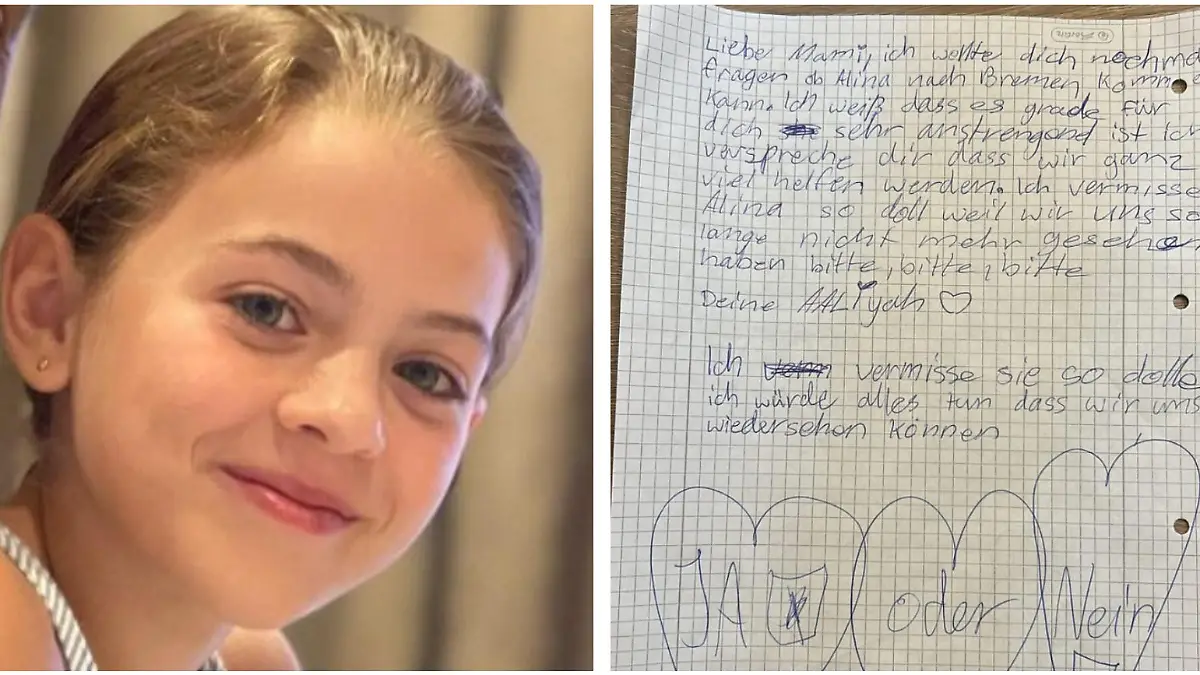 Liebe Mami, ich wollte dich nochma
fragen ob Alina nach Bremen komm
kann. Ich weiß dass es grade für
dich sehr anstrengend ist Ich
verspreche dir dass wir ganz
viel helfen werden. Ich vermisse
Alina so doll weil wir uns so
lange nicht mehr gesehe
haben bitte, bitte, bitte
Deine AALiyah
Ich vermisse sie so dolle
ich würde alles tun dass wir uns
wiedersehen können
JA oder Nein